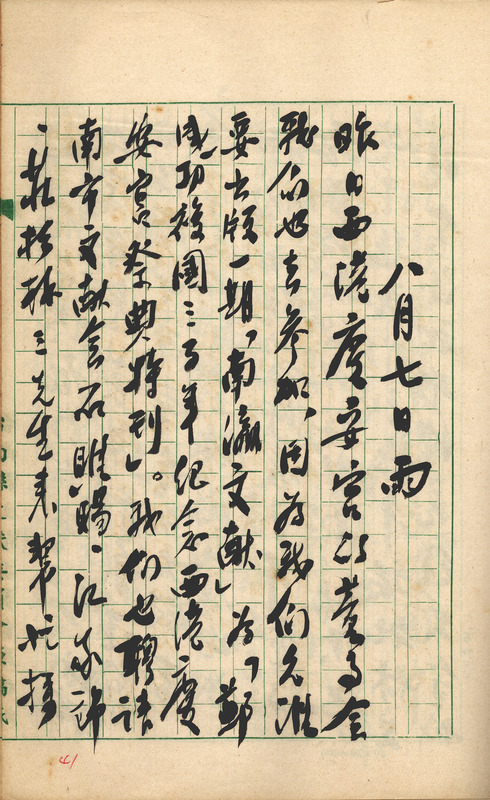 八月七日雨
昨日西港慶安宮的董事会
我们也去參加，因為我们允准
要出版一期，「南瀛文献」為「鄭
成功複國三百年紀念西港慶
安宮祭典特刊」。我们也聘請
南市文献会石暘睢、江家錦
、莊松林三先生來幫忙撰
41